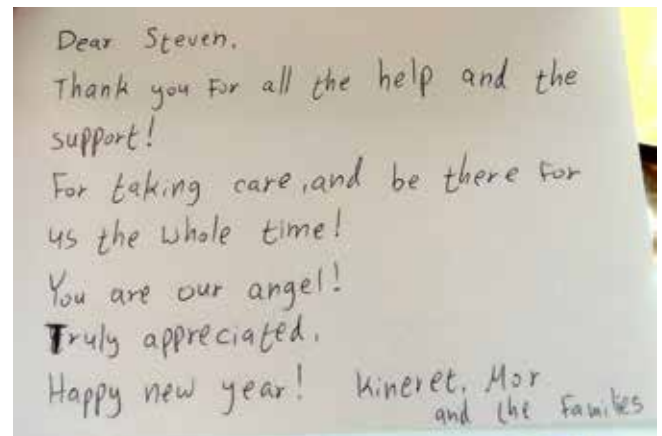 Dear Steven.
Thank you for all the help and the
support!
For taking care, and be there for
us the whole time!
You are our angel!
Truly appreciated.
Happy new year! Kineret, Mor
and the Families